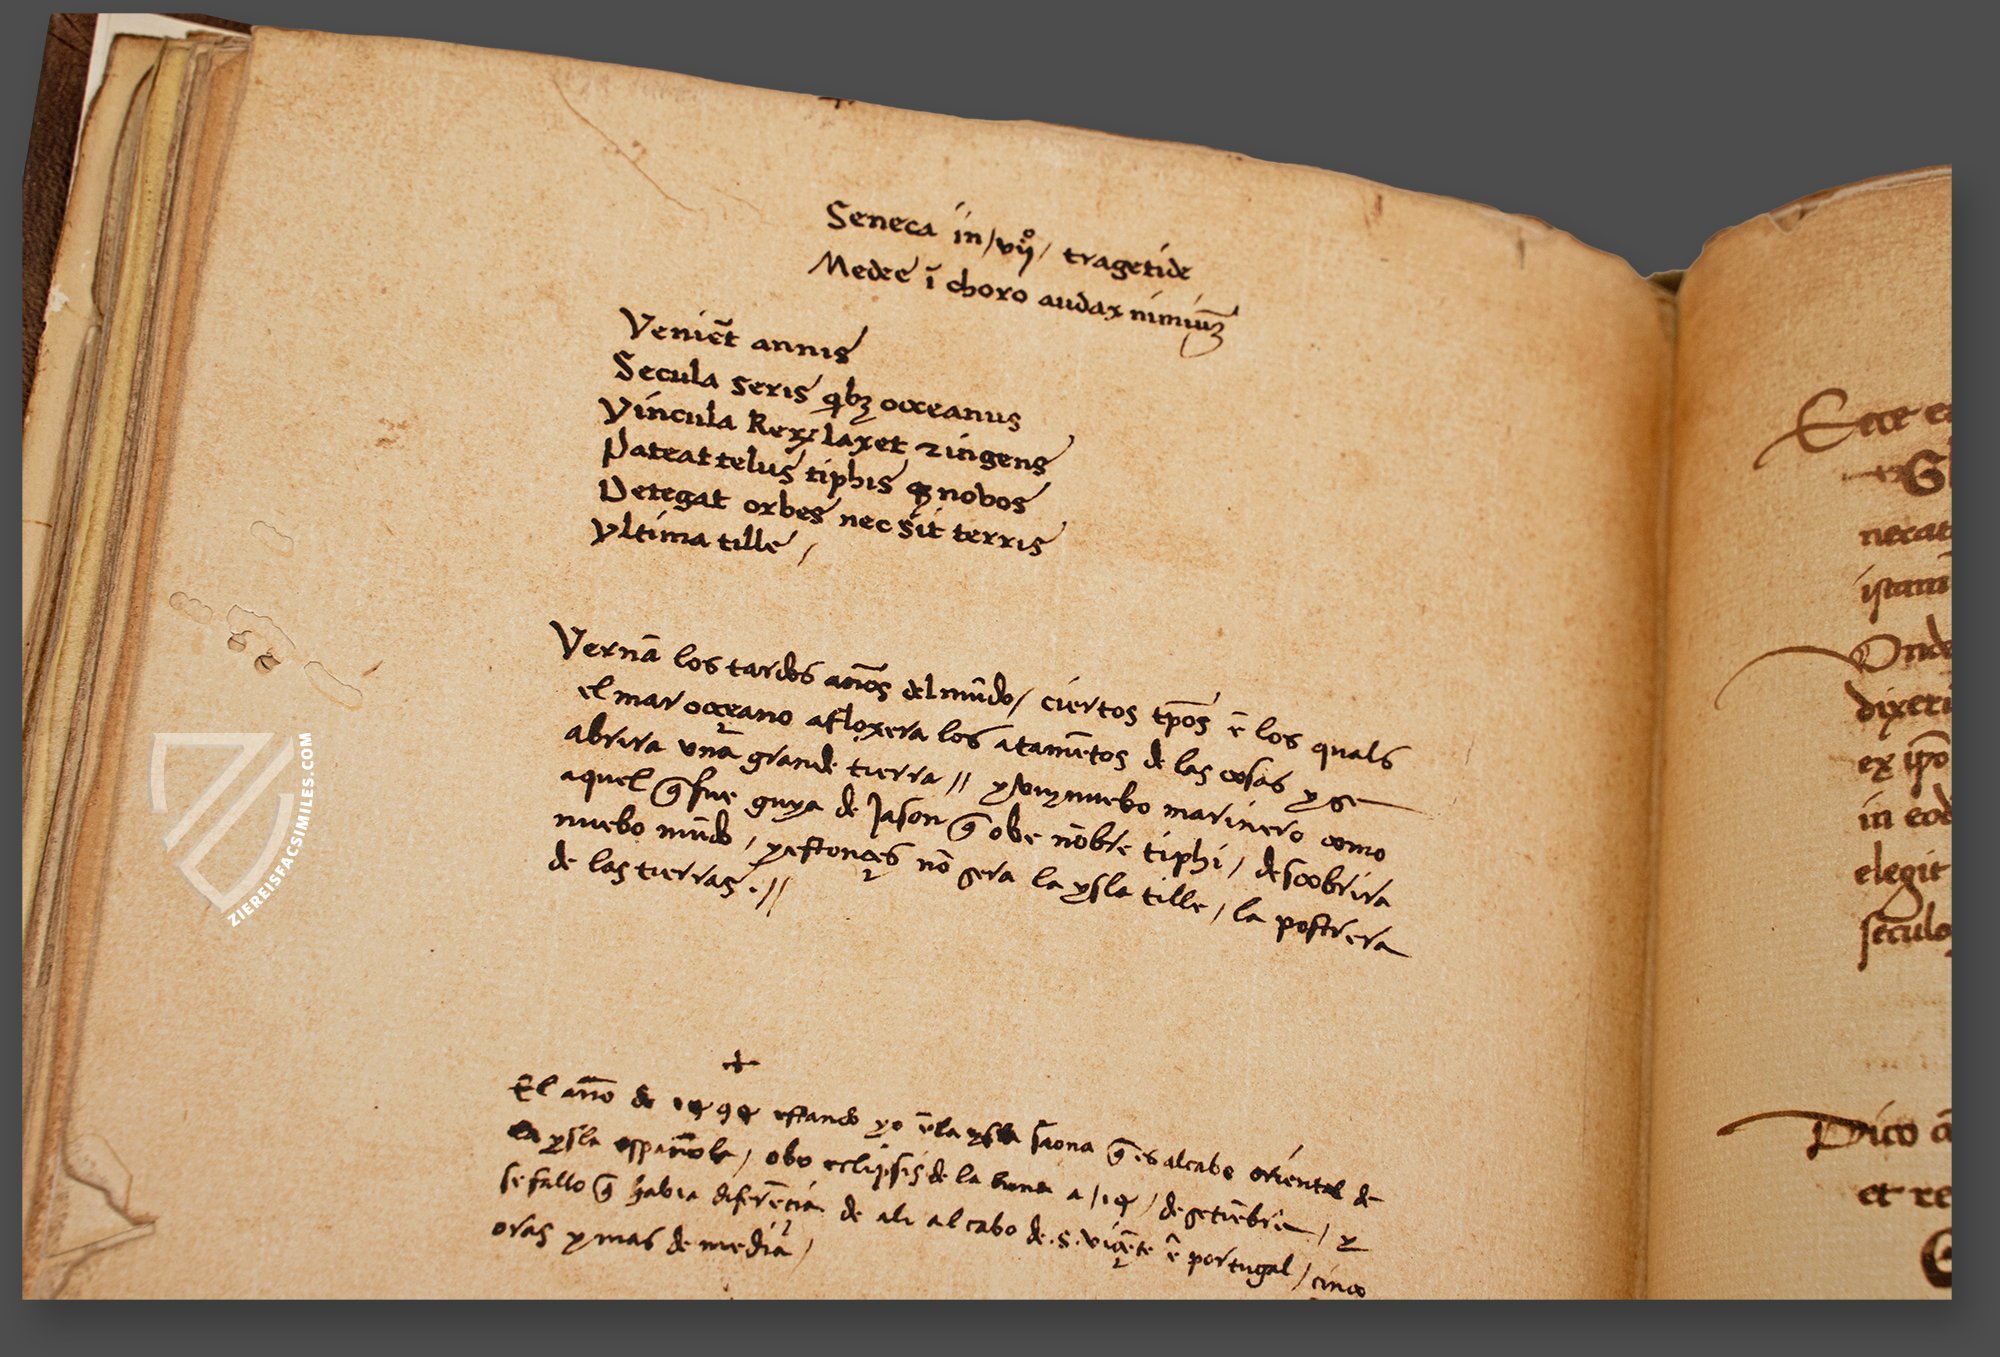 Seneca in /vijº/ tragetide
Medee ĩ choro audax nimiũz
Veniẽt annis
Secula seris qbz occeanus
Vincula Rexz laxet z ingens
Pateat telus tiphis qz novos
Detegat orbes nec sit terris
ultima tille /
Vernã los tardos años del mũdo / ciertos tp̃os ẽ los quals
el mar occeano afloxera los atamẽtos de las cosas y se
abrira vna grande tierra // y vn nuebo marinero como
aquel q̃ fue guya de Jason q̃ obe nõbre tiphi / descobrira
nuebo mũdo / y estonçes nõ sera la ysla tille / la postrera
de las tierras . //
El año de 1494 estando yo ẽ la ysla saona q̃ es al cabo oriental de
la ysla española / obo eclipsis de la luna a /14/ de setiẽbre / y
se fallo q̃ habia diferẽçia de ali al cabo de .S. viçẽte ẽ portugal / cinco
oras y mas de media /
Ecce e
necat
istam
Onde
dixeri
ex ip̃o
in eod
elegit
seculo
Dico
et re
ZIEREISFACSIMILES.COM